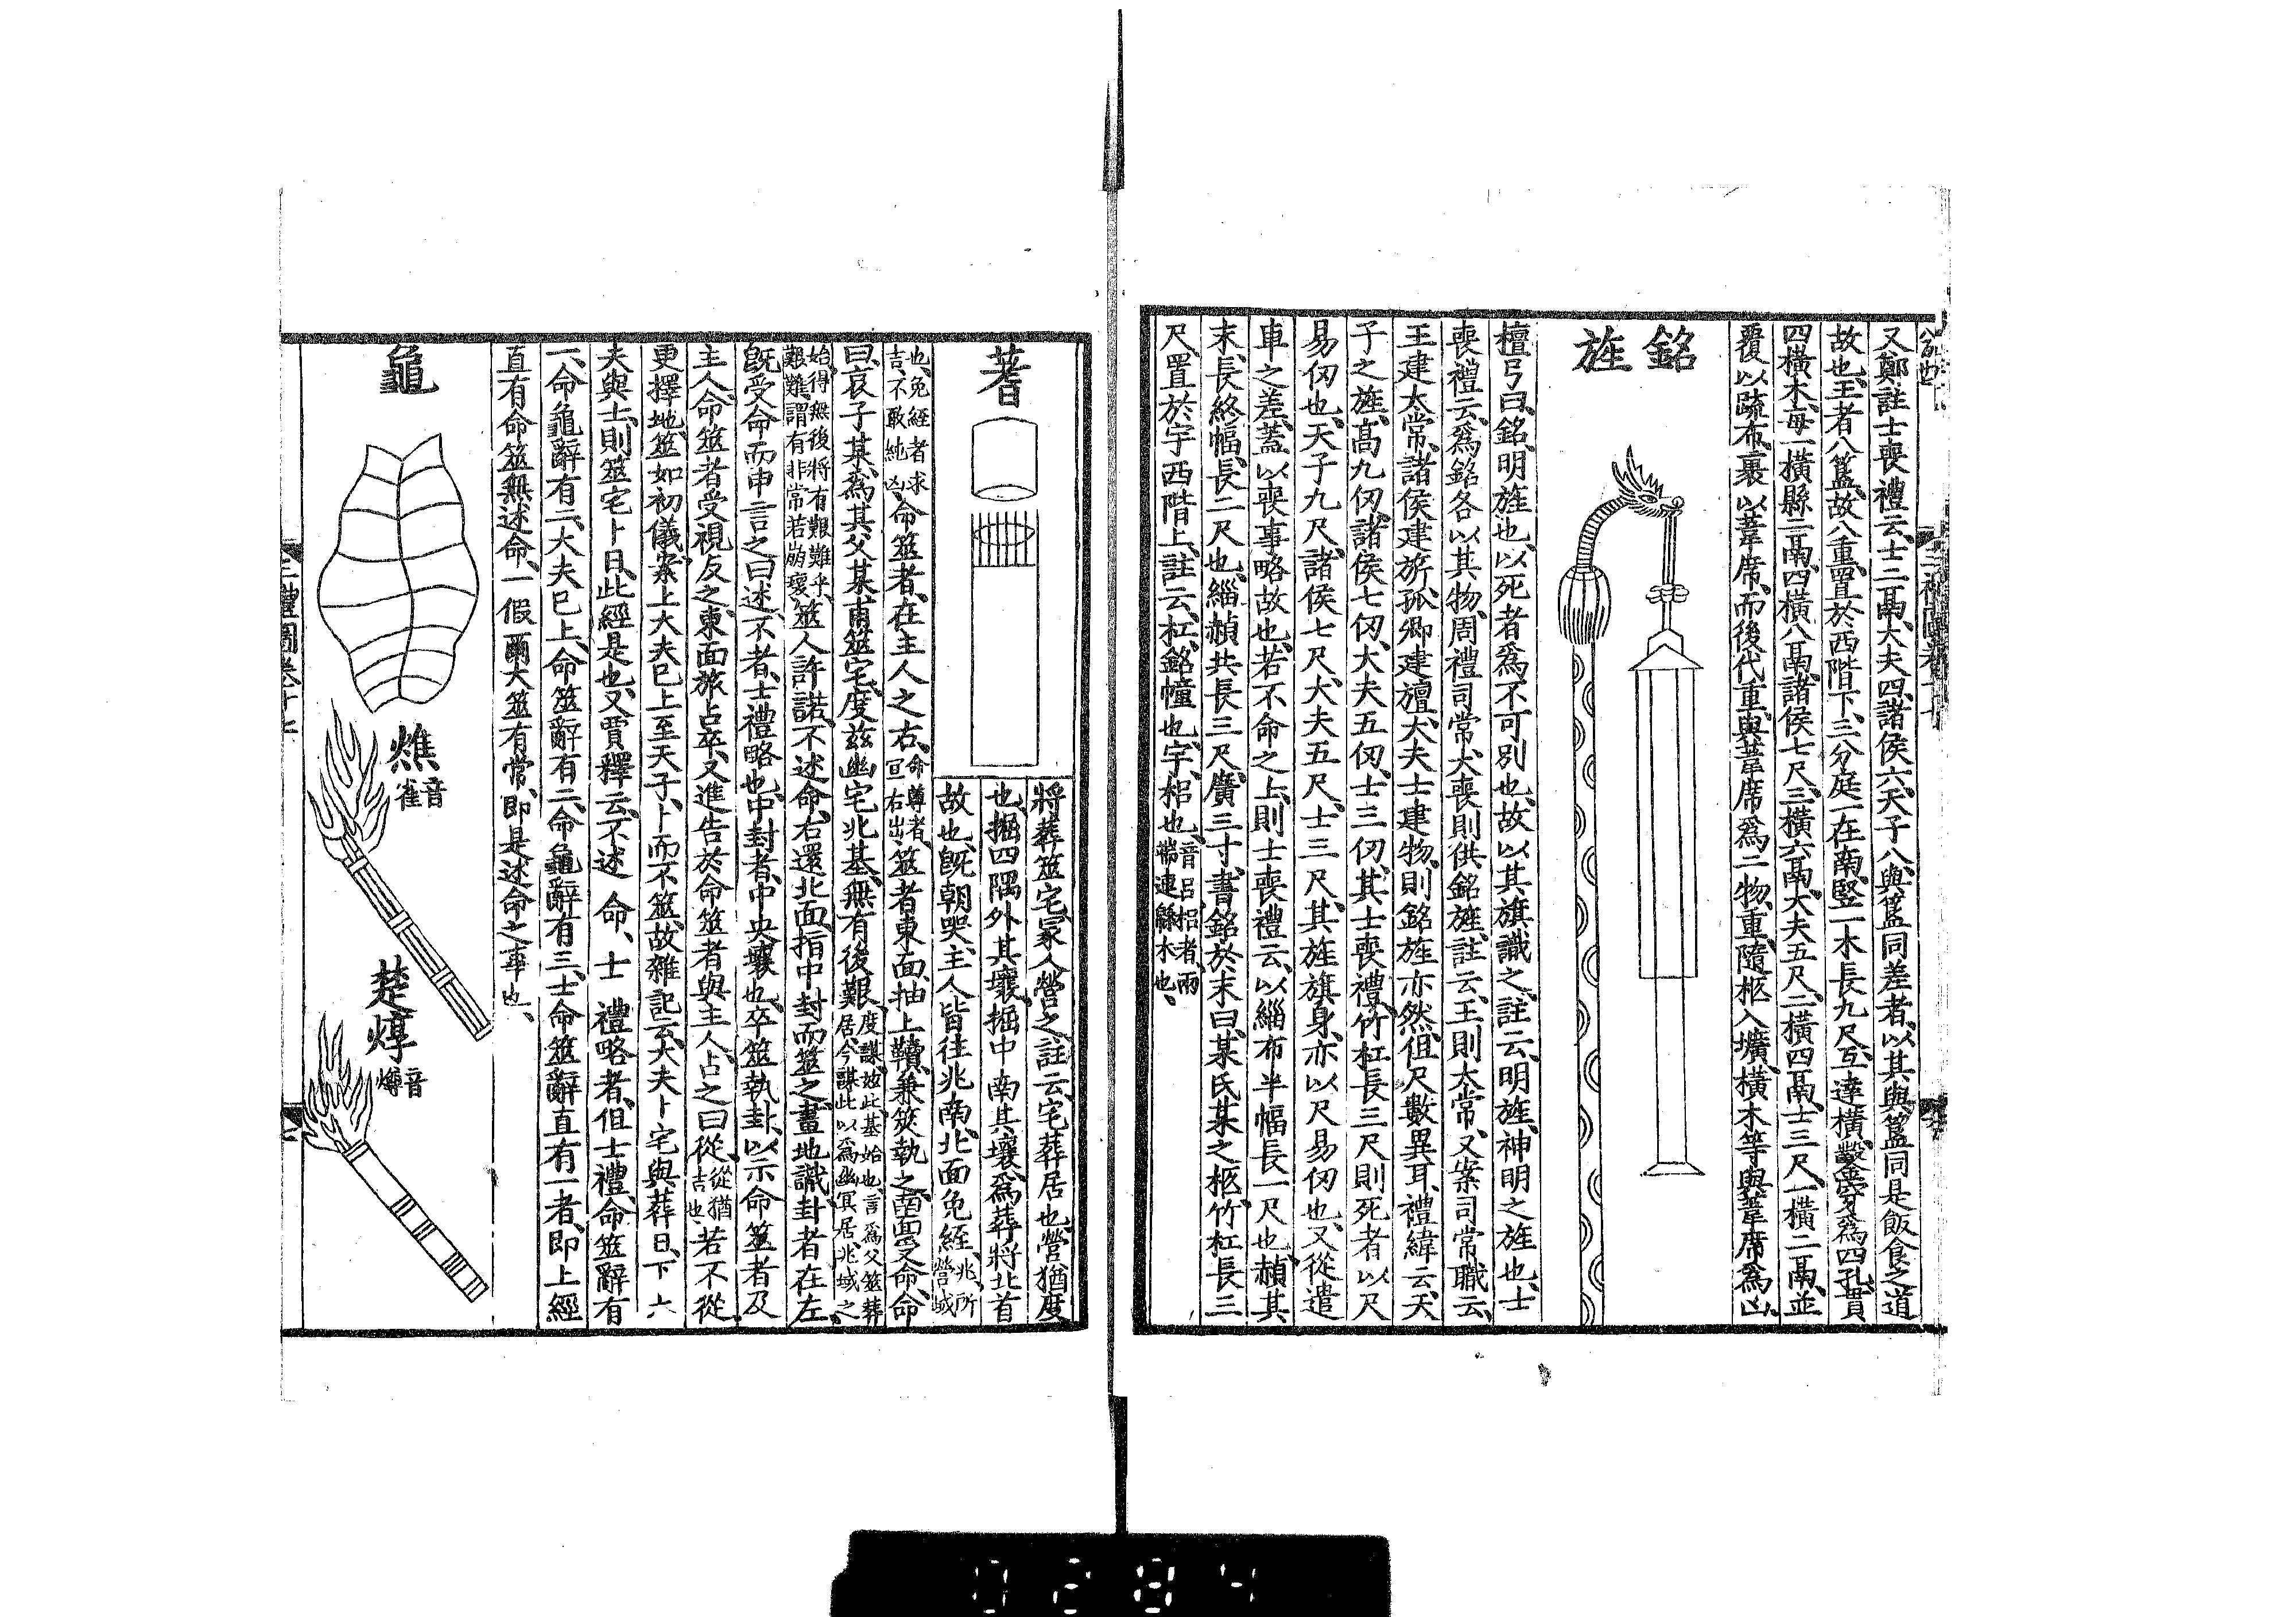 又鄭註士喪禮云、士二鬲、大夫四、諸侯六、天子八、與簋同差者、以其與簋同是飯食之道
故也、王者八簋、故八重、置於西階下、三分庭一在南、竪一木長九尺、互達橫、鑿穿爲四孔、貫
四橫木、每一橫縣二鬲、四橫八鬲、諸侯七尺、三橫六鬲、大夫五尺、二橫四鬲、士三尺、一橫二鬲、並
覆以疏布、裹以葦席、而後代重、與葦席爲二物、重隨柩入壙、橫木等與葦席爲凶
銘旌
檀弓曰、銘、明旌也、以死者爲不可別也、故以其旗識之、註云、明旌、神明之旌也、士
喪禮云、爲銘各以其物、周禮司常、大喪則供銘旌、註云、王則大常、又案司常職云、
王建大常、諸侯建旂、孤卿建旜、大夫士建物、則銘旌亦然、但尺數異耳、禮緯云、天
子之旌、高九仞、諸侯七仞、大夫五仞、士三仞、其士喪禮、竹杠長三尺、則死者以尺
易仞也、天子九尺、諸侯七尺、大夫五尺、士三尺、其旌旗身、亦以尺易仞也、又從遣
車之差、蓋以喪事略故也、若不命之上、則士喪禮云、以緇布半幅長一尺也、赬其
末、長終幅、長二尺也、緇赬共長三尺、廣三寸、書銘於末曰、某氏某之柩、竹杠長三
尺、置於宇西階上、註云、杠、銘幢也、宇、梠也、音呂梠者兩端連緜木也、
蓍
將葬筮宅、冢人營之、註云、宅葬居也、營猶度
也、掘四隅外其壤、掘中南其壤、爲葬將北首
故也、旣朝哭、主人皆往兆南、北面免絰、兆所營域
也、免絰者求吉、不敢純凶、命筮者、在主人之右、命尊者、宜右出、筮者東面、抽上韇、兼筴執之、南面受命、命
曰、哀子某、爲其父某甫筮宅、度茲幽宅兆基、無有後艱、度謀、玆此、基始也、言爲父筮葬居、今謀此以爲幽冥居、兆域之
始、得無後將有艱難乎、艱難、謂有非常若崩壞、筮人許諾、不述命、右還北面、指中封而筮之、畫地識卦者在左、
旣受命而申言之曰述、不者、士禮略也、中封者、中央壤也、卒筮執卦、以示命筮者及
主人、命筮者受視反之、東面旅占、卒、又進告於命筮者與主人、占之曰從、從猶吉也、若不從、
更擇地筮、如初儀、案上大夫已上至天子、卜而不筮、故雜記云、大夫卜宅與葬日、下六
夫與士、則筮宅卜日、此經是也、又賈釋云、不述命、士禮略者、但士禮命筮辭有
一、命龜辭有二、大夫已上、命筮辭有二、命龜辭有三、士命筮辭直有一者、卽上經
直有命筮無述命、一假爾大筮有常、卽是述命之事也、
龜
燋 音雀
楚焞 音燉
三禮圖卷十七
0284